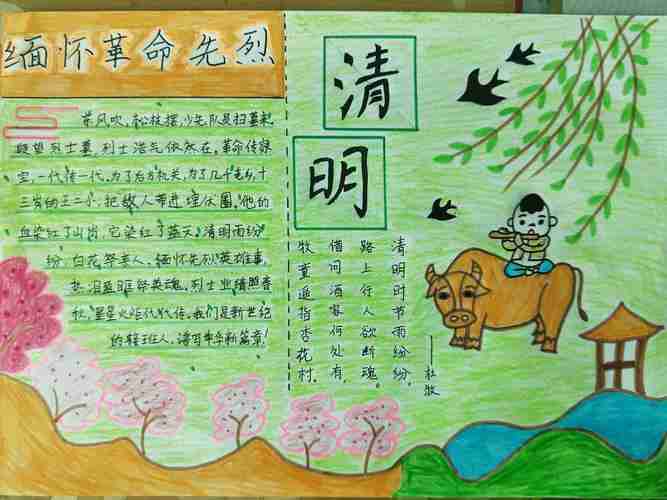 缅怀革命先烈
风吹,松枝摆,少先队员扫墓来
眺望烈士墓,烈士浩气依然在,革命传家
宝,一代传一代,为了后方机关,为了几千老乡,十
三岁的王二小,把敌人带进埋伏圈,他的
血染红了山岗,它染红了蓝天,清明雨纷
纷,白花祭亲人,缅怀先烈英雄事,
热泪盈眶祭英魂,烈士业绩照春
秋,星星火炬代代传,我们是新世纪
的接班人,谱写革命新篇章!
清
明
清明时节雨纷纷,
路上行人欲断魂。
借问酒家何处有,
牧童遥指杏花村。
——杜牧